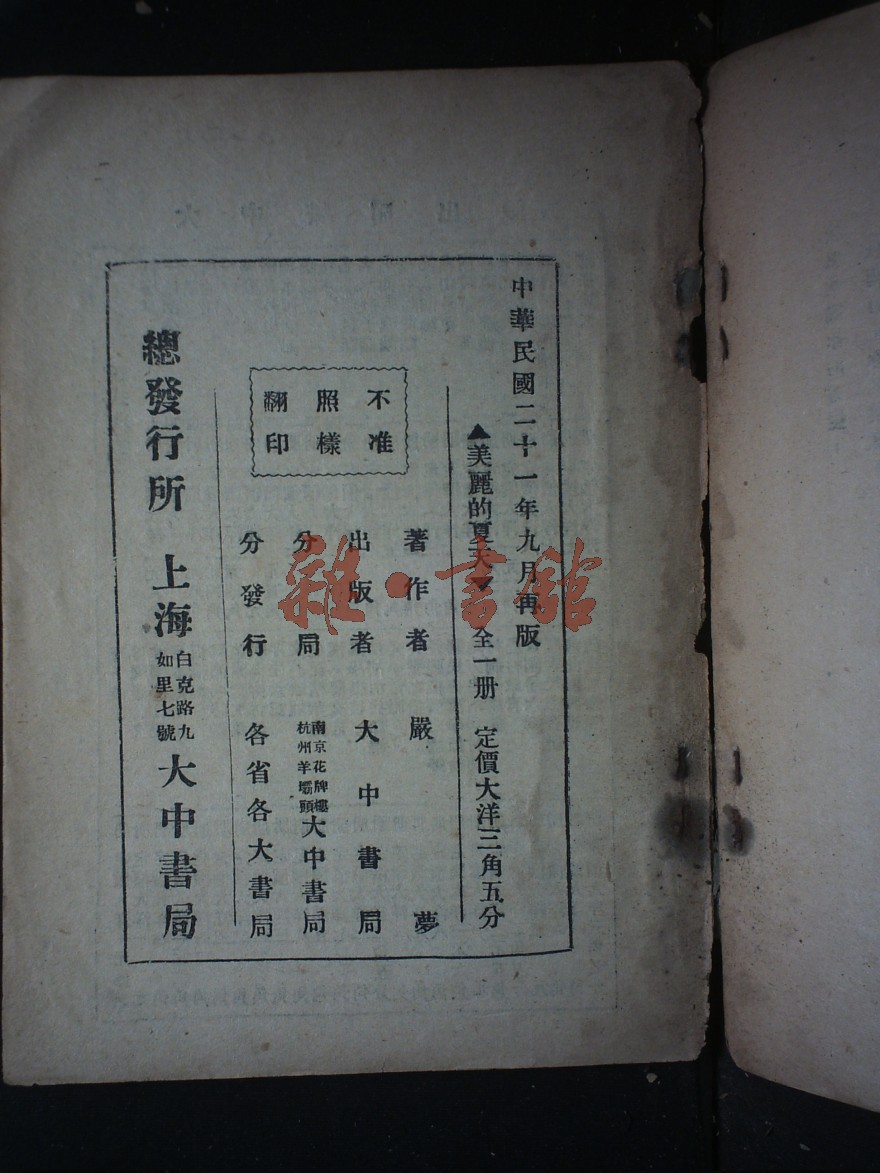 中華民國二十一年九月再版
▲美麗的夏天▼ 全一册 定價大洋三角五分
不准
照樣
翻印
著作者 嚴夢
出版者 大中書局
分局 南京花牌樓 杭州羊壩頭 大中書局
分發行 各省各大書局
總發行所 上海 白克路九如里七號 大中書局
雜·書館